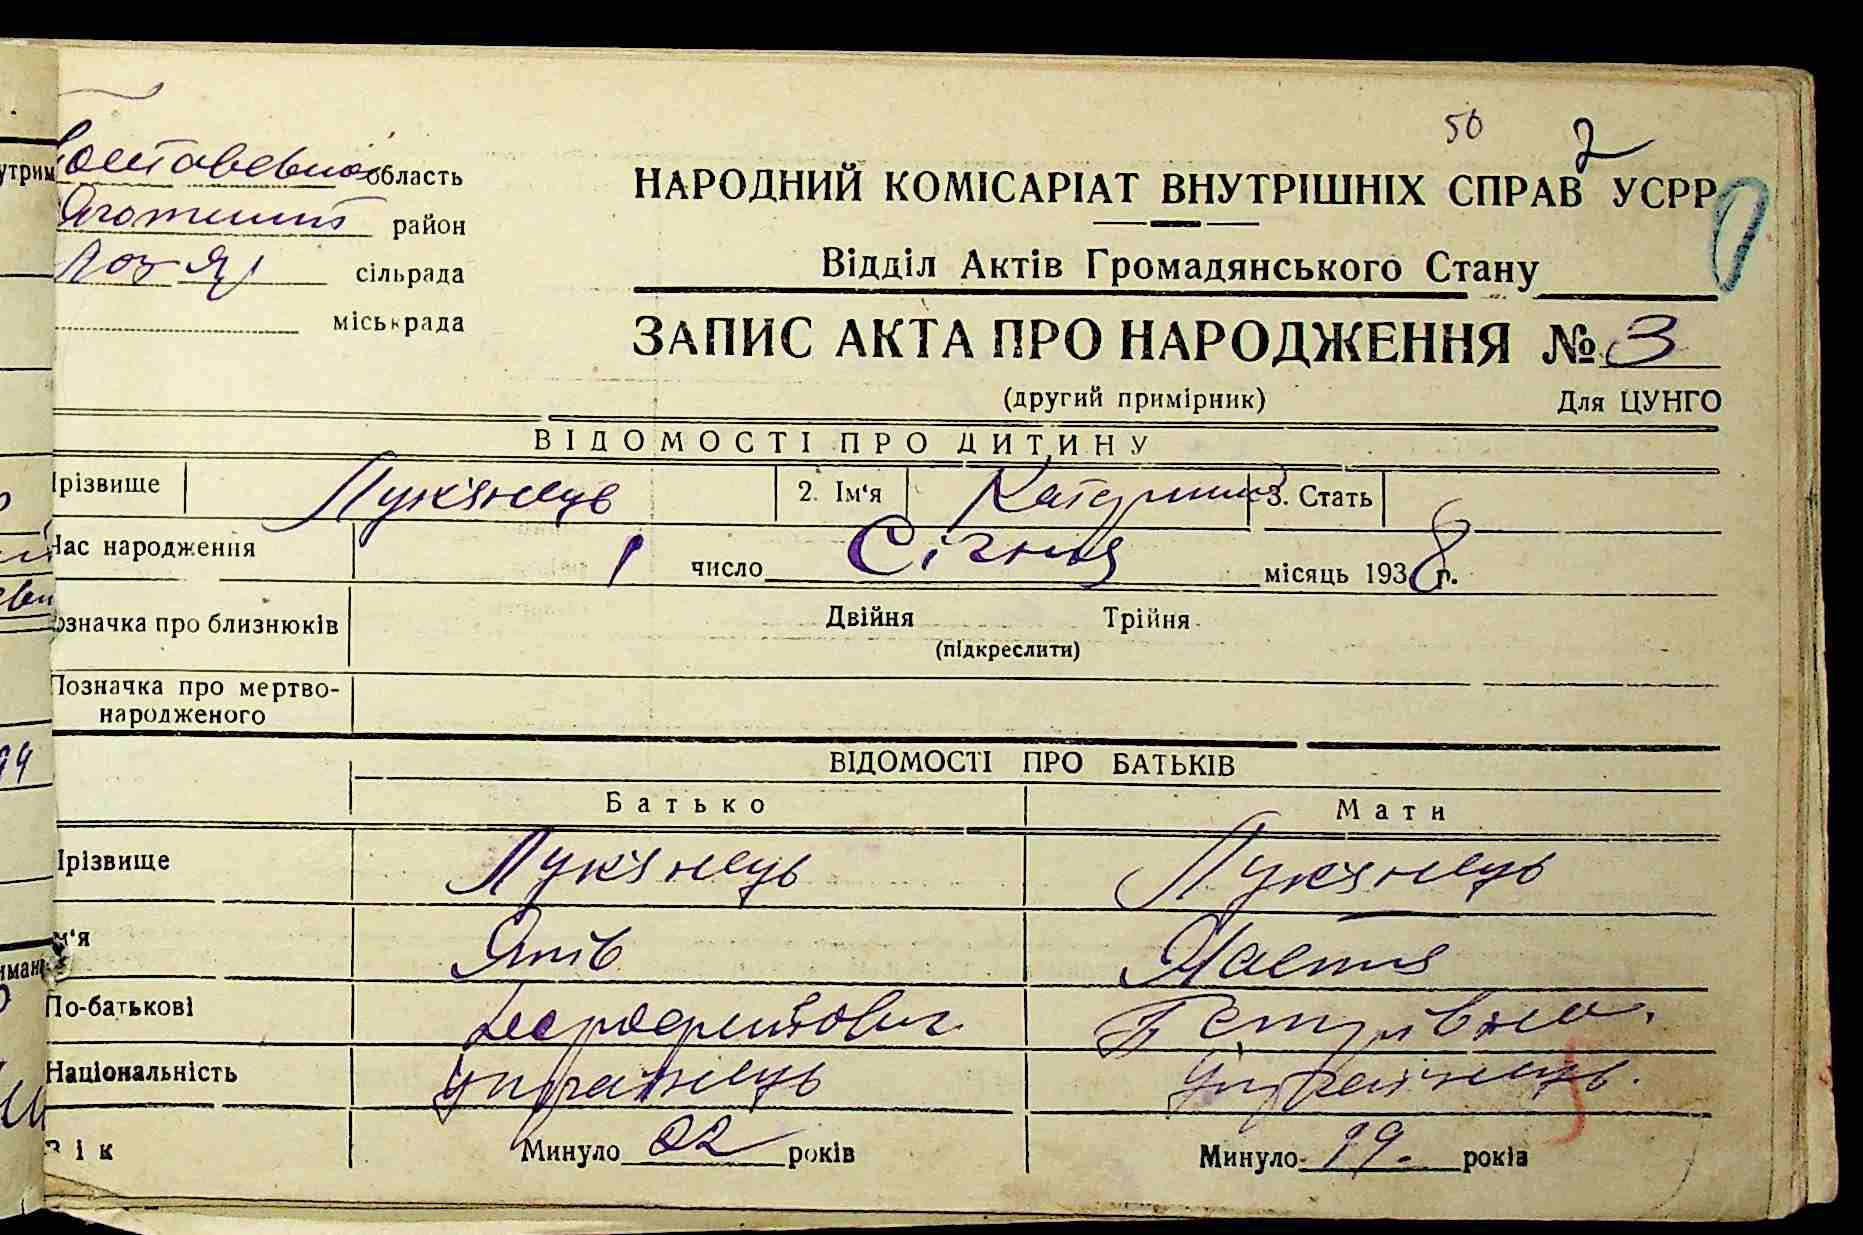 50 2
Полтавська область
НАРОДНИЙ КОМІСАРІАТ ВНУТРІШНІХ СПРАВ УСРР
Яготинськ район
Відділ Актів Громадянського Стану
Лоз Яр сільрада
міськрада
ЗАПИС АКТА ПРО НАРОДЖЕННЯ № 3
(другий примірник) Для ЦУНГО
ВІДОМОСТІ ПРО ДИТИНУ
Прізвище Лукянець 2. Ім'я Катерина 3. Стать
Час народження 1 число Січня місяць 1938 р.
Позначка про близнюків Двійня Трійня
(підкреслити)
Позначка про мертво-
народженого
ВІДОМОСТІ ПРО БАТЬКІВ
Батько Мати
Прізвище Лукянець Лукянець
Ім'я Яків Настя
По-батькові Петрівна.
Національність Українець Українець.
Вік Минуло 22 років Минуло 19. років